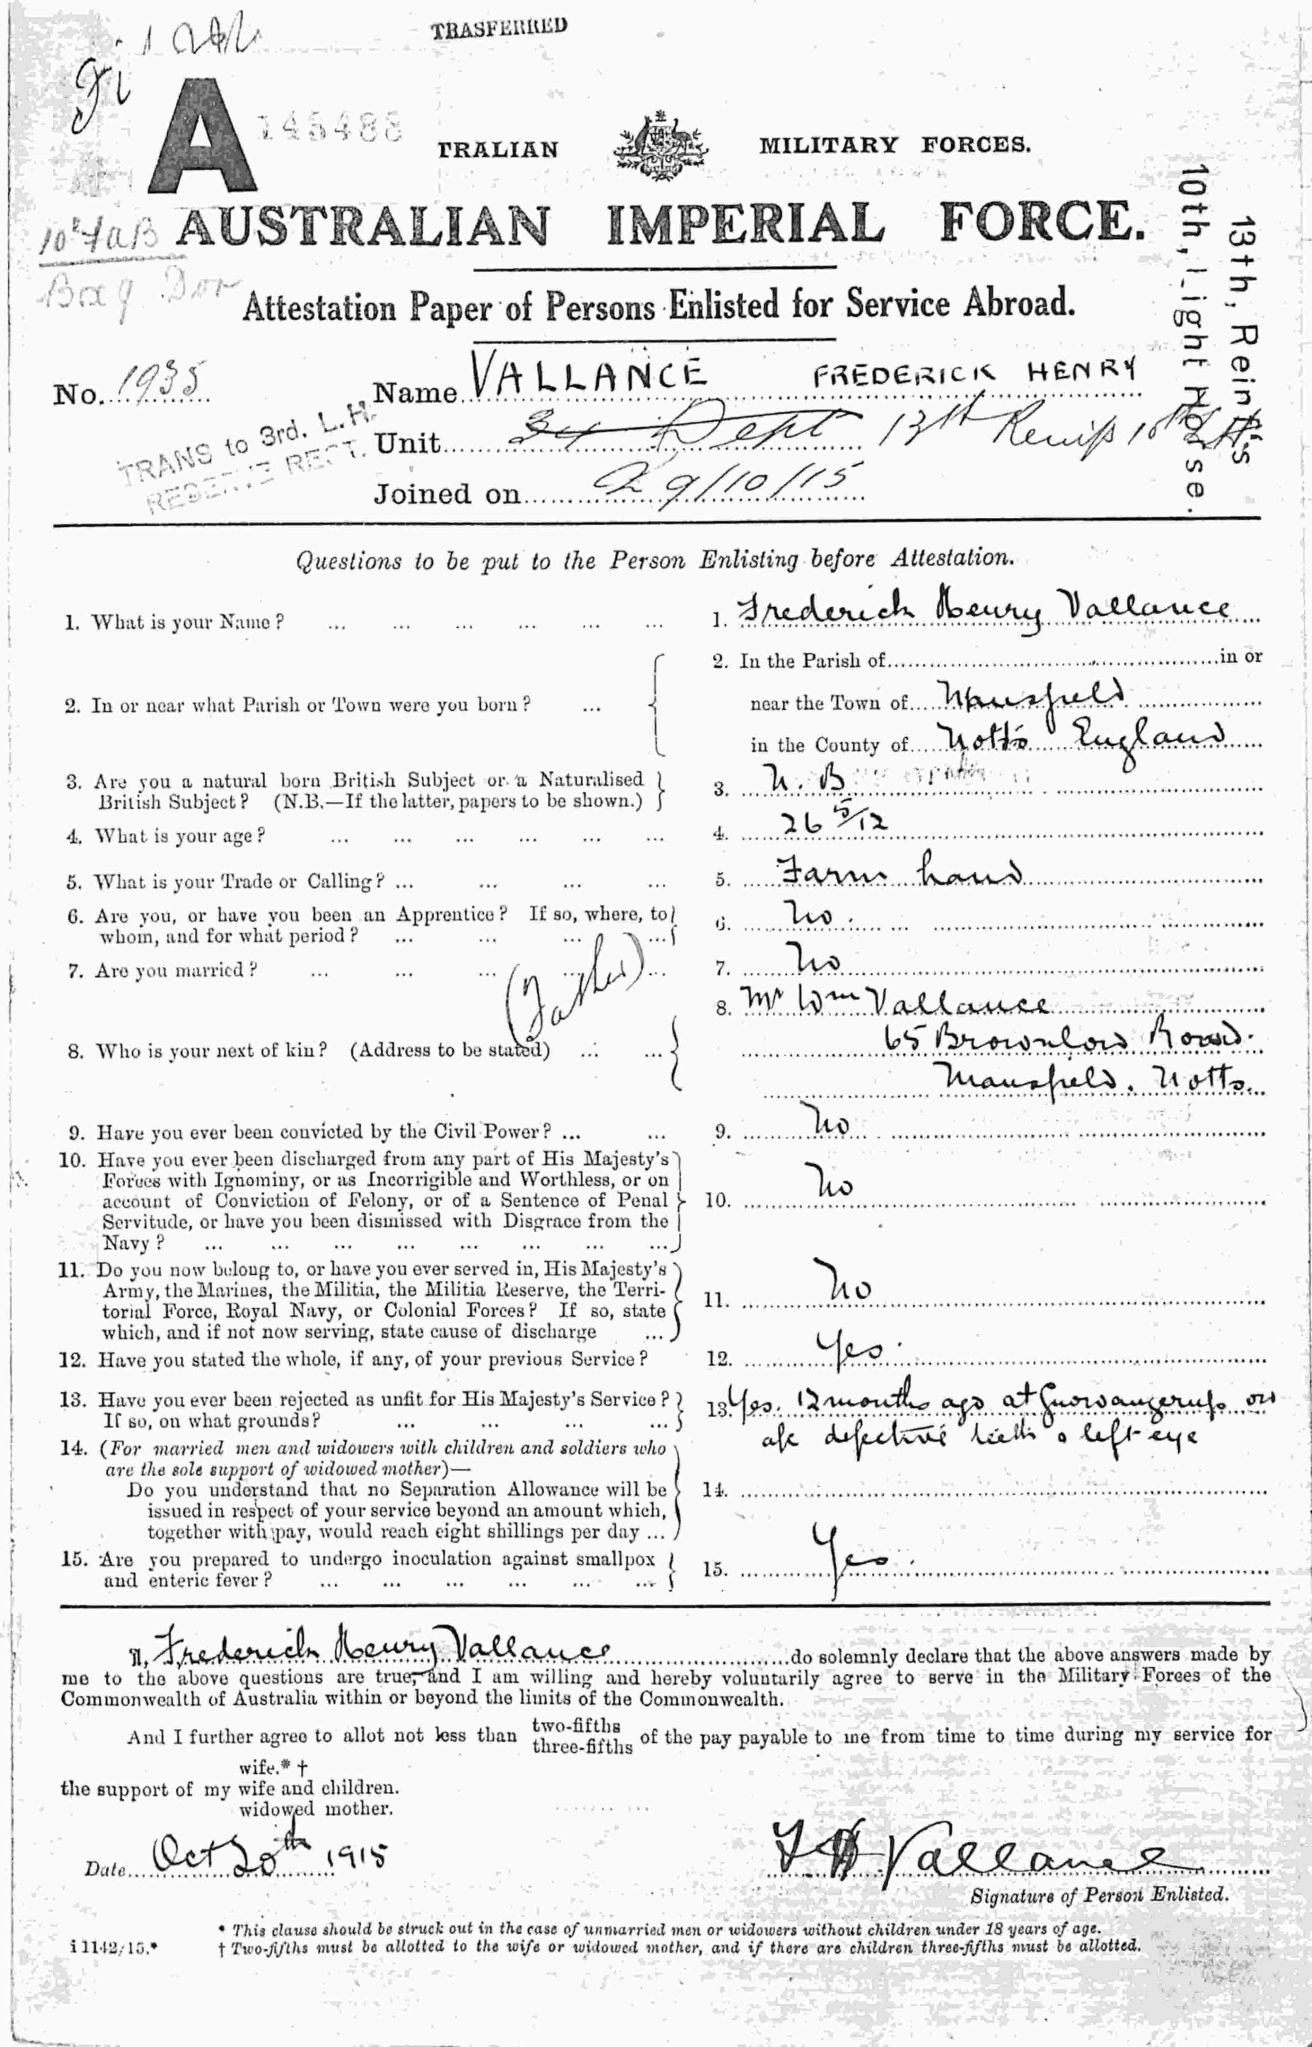 TRASFERRED
A
145488
TRALIAN MILITARY FORCES.
10th, Light Horse.
13th, Reinf's
AUSTRALIAN IMPERIAL FORCE.
Attestation Paper of Persons Enlisted for Service Abroad.
No. 1935 Name VALLANCE FREDERICK HENRY
TRANS to 3rd. L. H.
RESERVE REGT.
Unit Dept 13th Reinfs 10th
Joined on 29/10/15
Questions to be put to the Person Enlisting before Attestation.
1. What is your Name? ... ... ... ... ... ... 1. Frederick Henry Vallance
2. In or near what Parish or Town were you born? ... 2. In the Parish of in or
near the Town of Mansfield
in the County of Notts England
3. Are you a natural born British Subject or a Naturalised
British Subject? (N.B.—If the latter, papers to be shown.) 3. N. B
4. What is your age? ... ... ... ... ... ... 4. 26 5/12
5. What is your Trade or Calling? ... ... ... ... 5. Farm hand
6. Are you, or have you been an Apprentice? If so, where, to
whom, and for what period? ... ... ... ... 6. No.
7. Are you married? ... ... ... ... ... 7. No
(Father)
8. Who is your next of kin? (Address to be stated) ... ... 8. Mr Wm Vallance
65 Brownlow Road.
Mansfield. Notts.
9. Have you ever been convicted by the Civil Power? ... ... 9. No
10. Have you ever been discharged from any part of His Majesty's
Forces with Ignominy, or as Incorrigible and Worthless, or on
account of Conviction of Felony, or of a Sentence of Penal
Servitude, or have you been dismissed with Disgrace from the
Navy? ... ... ... ... ... ... ... ... 10. No
11. Do you now belong to, or have you ever served in, His Majesty's
Army, the Marines, the Militia, the Militia Reserve, the Terri-
torial Force, Royal Navy, or Colonial Forces? If so, state
which, and if not now serving, state cause of discharge ... 11. No
12. Have you stated the whole, if any, of your previous Service? 12. Yes.
13. Have you ever been rejected as unfit for His Majesty's Service?
If so, on what grounds? ... ... ... ... ... 13. Yes. 12 months ago at Gnowangerup on
a/c defective teeth & left eye
14. (For married men and widowers with children and soldiers who
are the sole support of widowed mother)—
Do you understand that no Separation Allowance will be
issued in respect of your service beyond an amount which,
together with pay, would reach eight shillings per day ... 14.
15. Are you prepared to undergo inoculation against smallpox
and enteric fever? ... ... ... ... ... ... 15. Yes.
I, Frederick Henry Vallance do solemnly declare that the above answers made by
me to the above questions are true, and I am willing and hereby voluntarily agree to serve in the Military Forces of the
Commonwealth of Australia within or beyond the limits of the Commonwealth.
And I further agree to allot not less than two-fifths three-fifths of the pay payable to me from time to time during my service for
wife.* †
the support of my wife and children.
widowed mother.
Date Oct 20th 1915 F H Vallance
Signature of Person Enlisted.
* This clause should be struck out in the case of unmarried men or widowers without children under 18 years of age.
i 1142/15.* † Two-fifths must be allotted to the wife or widowed mother, and if there are children three-fifths must be allotted.